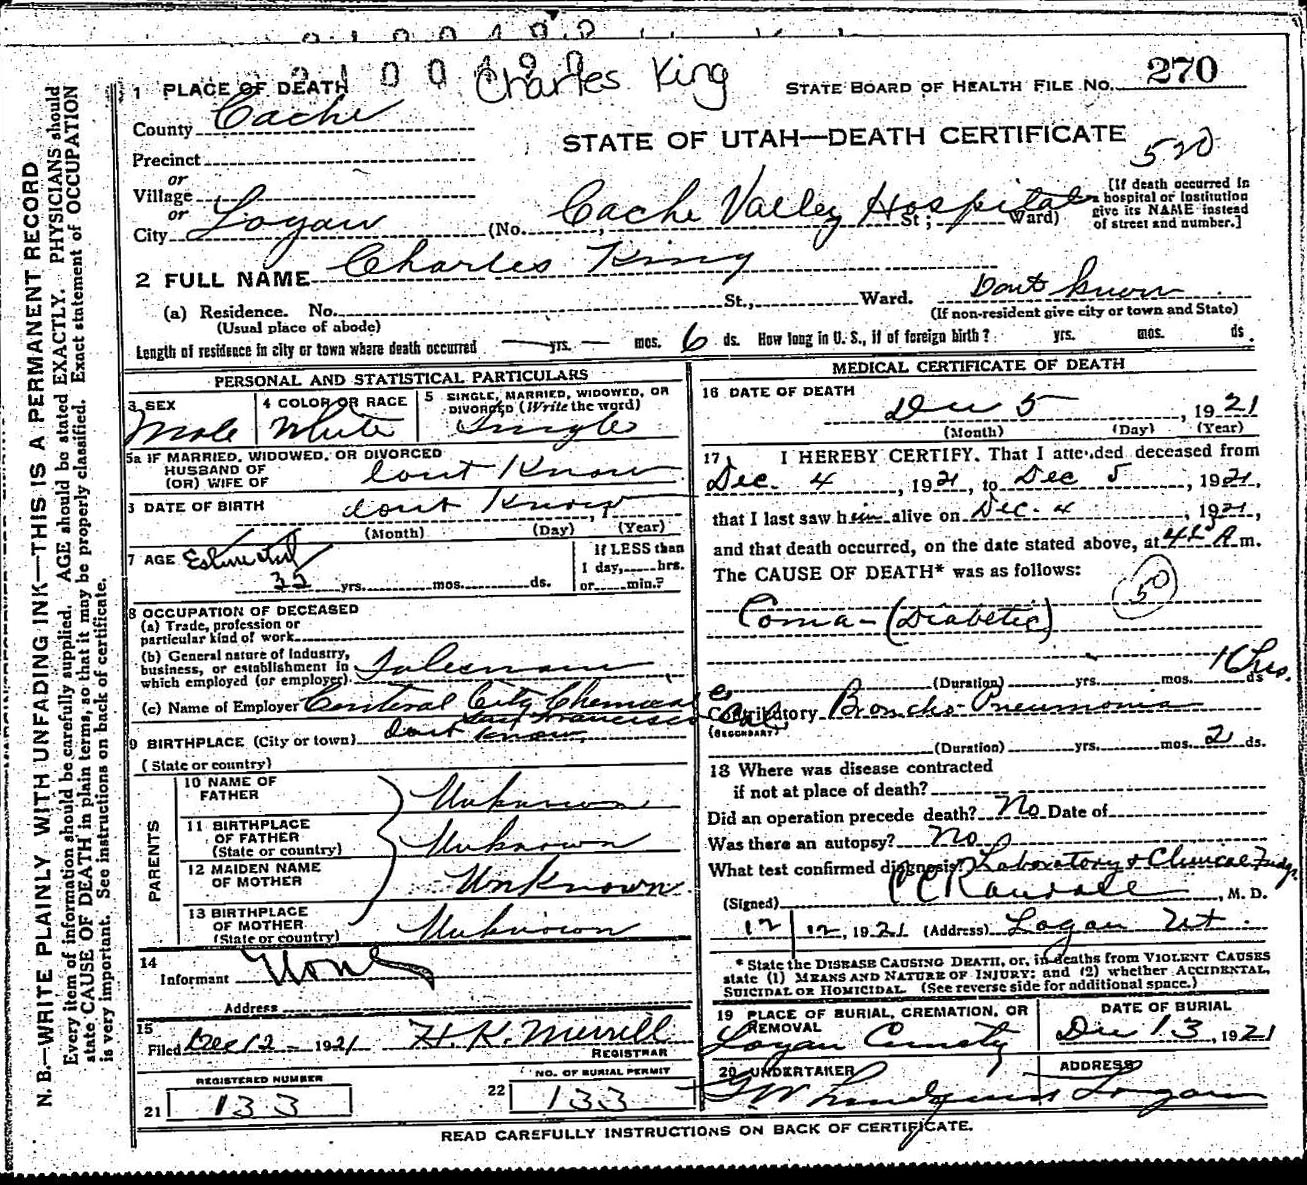 2 1 0 0 4 9 0
Charles King
STATE BOARD OF HEALTH FILE NO. 270
1 PLACE OF DEATH
County Cache
STATE OF UTAH—DEATH CERTIFICATE
520
Precinct
or
Village
or
City Logan (No. Cache Valley Hospital St; Ward)
[If death occurred in
a hospital or institution
give its NAME instead
of street and number.]
2 FULL NAME Charles King
(a) Residence. No. St., Ward. Dont know
(Usual place of abode) (If non-resident give city or town and State)
Length of residence in city or town where death occurred — yrs. — mos. 6 ds. How long in U. S., if of foreign birth? yrs. mos. ds.
PERSONAL AND STATISTICAL PARTICULARS
3 SEX
Male
4 COLOR OR RACE
White
5 SINGLE, MARRIED, WIDOWED, OR
DIVORCED (Write the word)
Single
5a IF MARRIED, WIDOWED, OR DIVORCED
HUSBAND OF
(OR) WIFE OF dont Know
DATE OF BIRTH dont Know, 1
(Month) (Day) (Year)
7 AGE Estimated
yrs. mos. ds.
If LESS than
1 day, hrs.
or min.?
8 OCCUPATION OF DECEASED
(a) Trade, profession or
particular kind of work
(b) General nature of Industry,
business, or establishment in
which employed (or employer) Salesman
(c) Name of Employer Central City Chemical Co
San Francisco Cal,
9 BIRTHPLACE (City or town) dont know,
(State or country)
PARENTS
10 NAME OF
FATHER Unknown
11 BIRTHPLACE
OF FATHER
(State or country) Unknown
12 MAIDEN NAME
OF MOTHER Unknown
13 BIRTHPLACE
OF MOTHER
(State or country) Unknown
14
Informant None
Address
15
Filed Dec 12 - 1921 H. K. Merrill
REGISTRAR
REGISTERED NUMBER
21 133
NO. OF BURIAL PERMIT
22 133
MEDICAL CERTIFICATE OF DEATH
16 DATE OF DEATH
Dec 5, 1921
(Month) (Day) (Year)
17 I HEREBY CERTIFY, That I attended deceased from
Dec. 4, 1921, to Dec 5, 1921,
that I last saw him alive on Dec. 4, 1921,
and that death occurred, on the date stated above, at A m.
The CAUSE OF DEATH* was as follows:
50
Coma - (Diabetic)
(Duration) yrs. mos. ds
Contributory Broncho-Pneumonia
(SECONDARY)
(Duration) yrs. mos. 2 ds.
18 Where was disease contracted
if not at place of death?
Did an operation precede death? No Date of
Was there an autopsy? No
What test confirmed diagnosis? Laboratory & Clinical Findgs
(Signed) , M. D.
12/12, 1921 (Address) Logan Ut.
* State the DISEASE CAUSING DEATH, or, in deaths from VIOLENT CAUSES
state (1) MEANS AND NATURE OF INJURY; and (2) whether ACCIDENTAL,
SUICIDAL OR HOMICIDAL. (See reverse side for additional space.)
19 PLACE OF BURIAL, CREMATION, OR
REMOVAL
Logan
DATE OF BURIAL
Dec 13, 1921
20 UNDERTAKER
ADDRESS
Logan
READ CAREFULLY INSTRUCTIONS ON BACK OF CERTIFICATE.
N. B.—WRITE PLAINLY WITH UNFADING INK—THIS IS A PERMANENT RECORD
Every item of information should be carefully supplied. AGE should be stated EXACTLY. PHYSICIANS should
state CAUSE OF DEATH in plain terms, so that it may be properly classified. Exact statement of OCCUPATION
is very important. See instructions on back of certificate.